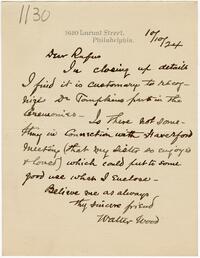 1130
1620 Locust Street,
Philadelphia.
10/10/24
Dear Rufus
In closing up details
I find it is customary to recog-
nize Dr Tompkins part in the
Ceremonies - Is there not some-
thing in Connection with Haverford
Meeting (that my sister so enjoyed
& loved) which could put to some
good use which I enclose -
Believe me as always
thy sincere friend
Walter Wood